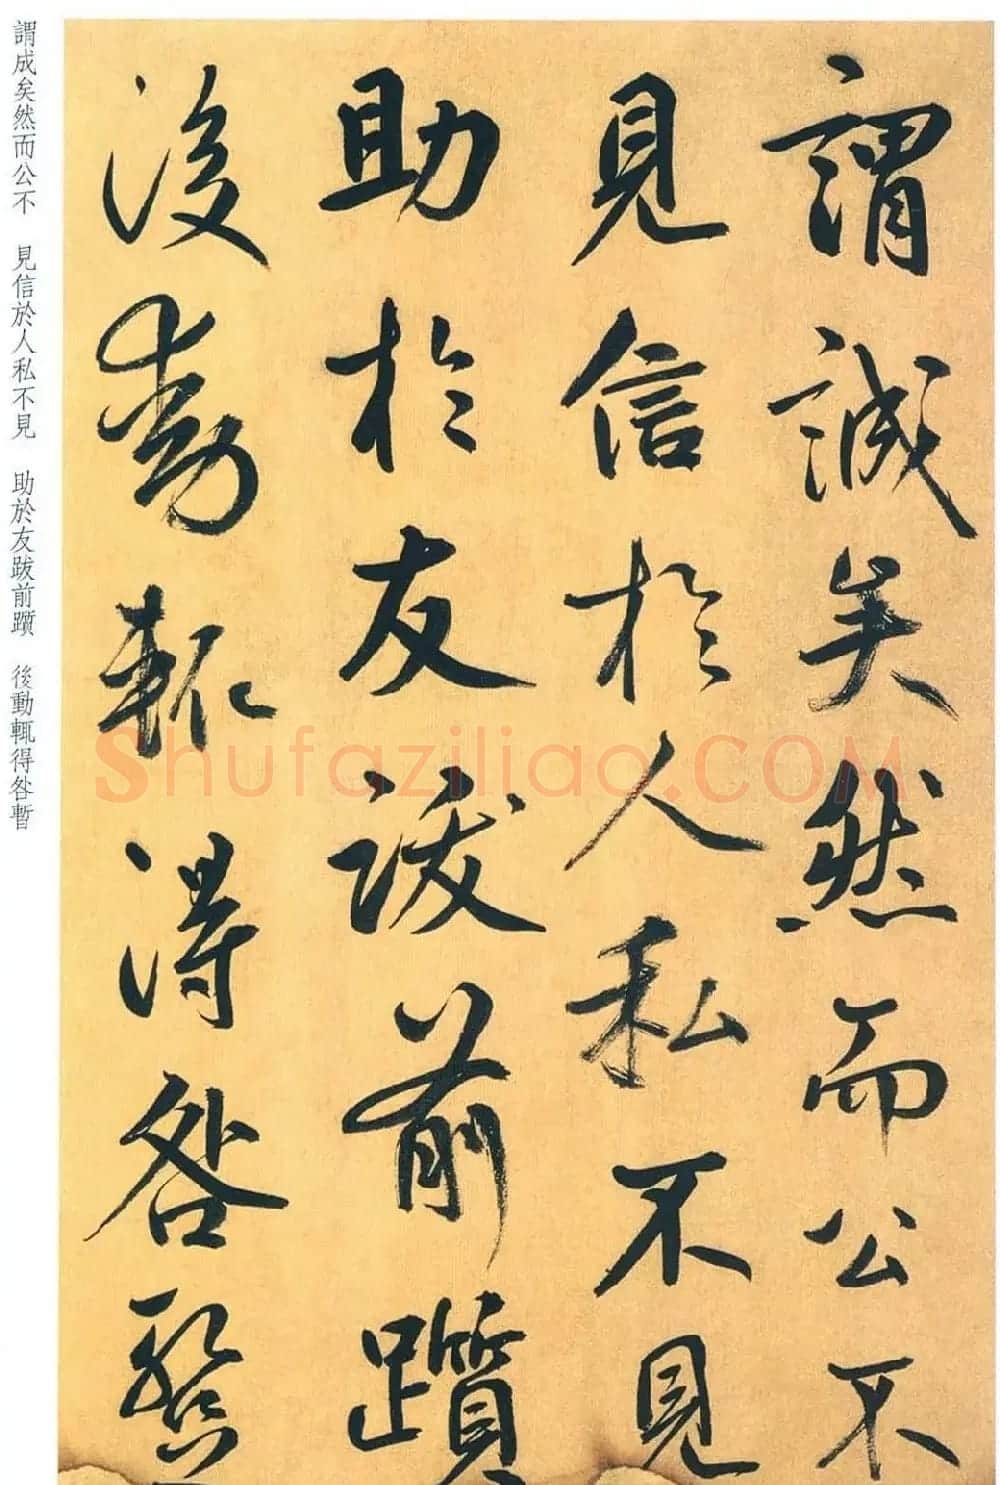 謂誠矣然而公不
見信於人私不見
助於友跋前躓
後動輒得咎暫
謂成矣然而公不　見信於人私不見　助於友跋前躓　後動輒得咎暫
Shufaziliao.COM